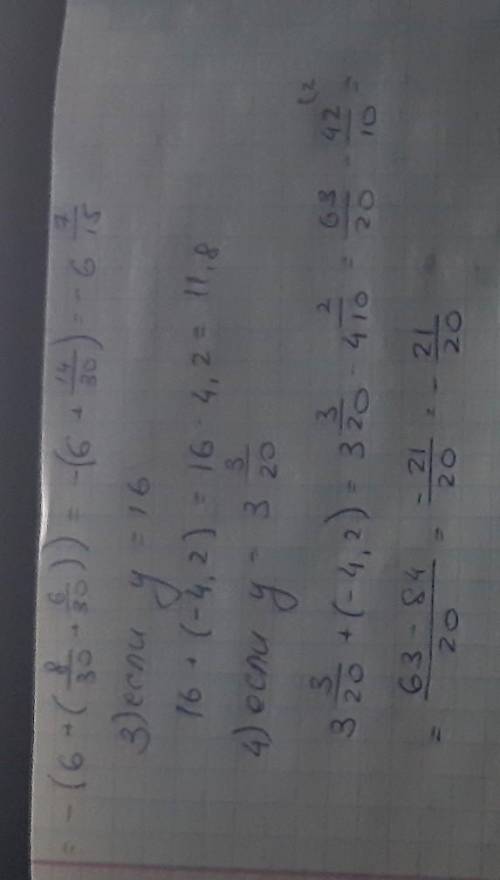 = -(6 + (8/30 + 6/30)) = -(6 + 14/30) = -6 7/15
3) если y = 16
16 + (-4,2) = 16 - 4,2 = 11,8
4) если y = 3 3/20
3 3/20 + (-4,2) = 3 3/20 - 4 2/10 = 63/20 - 42/10 (2 =
= 63 - 84/20 = - 21/20 = - 21/20